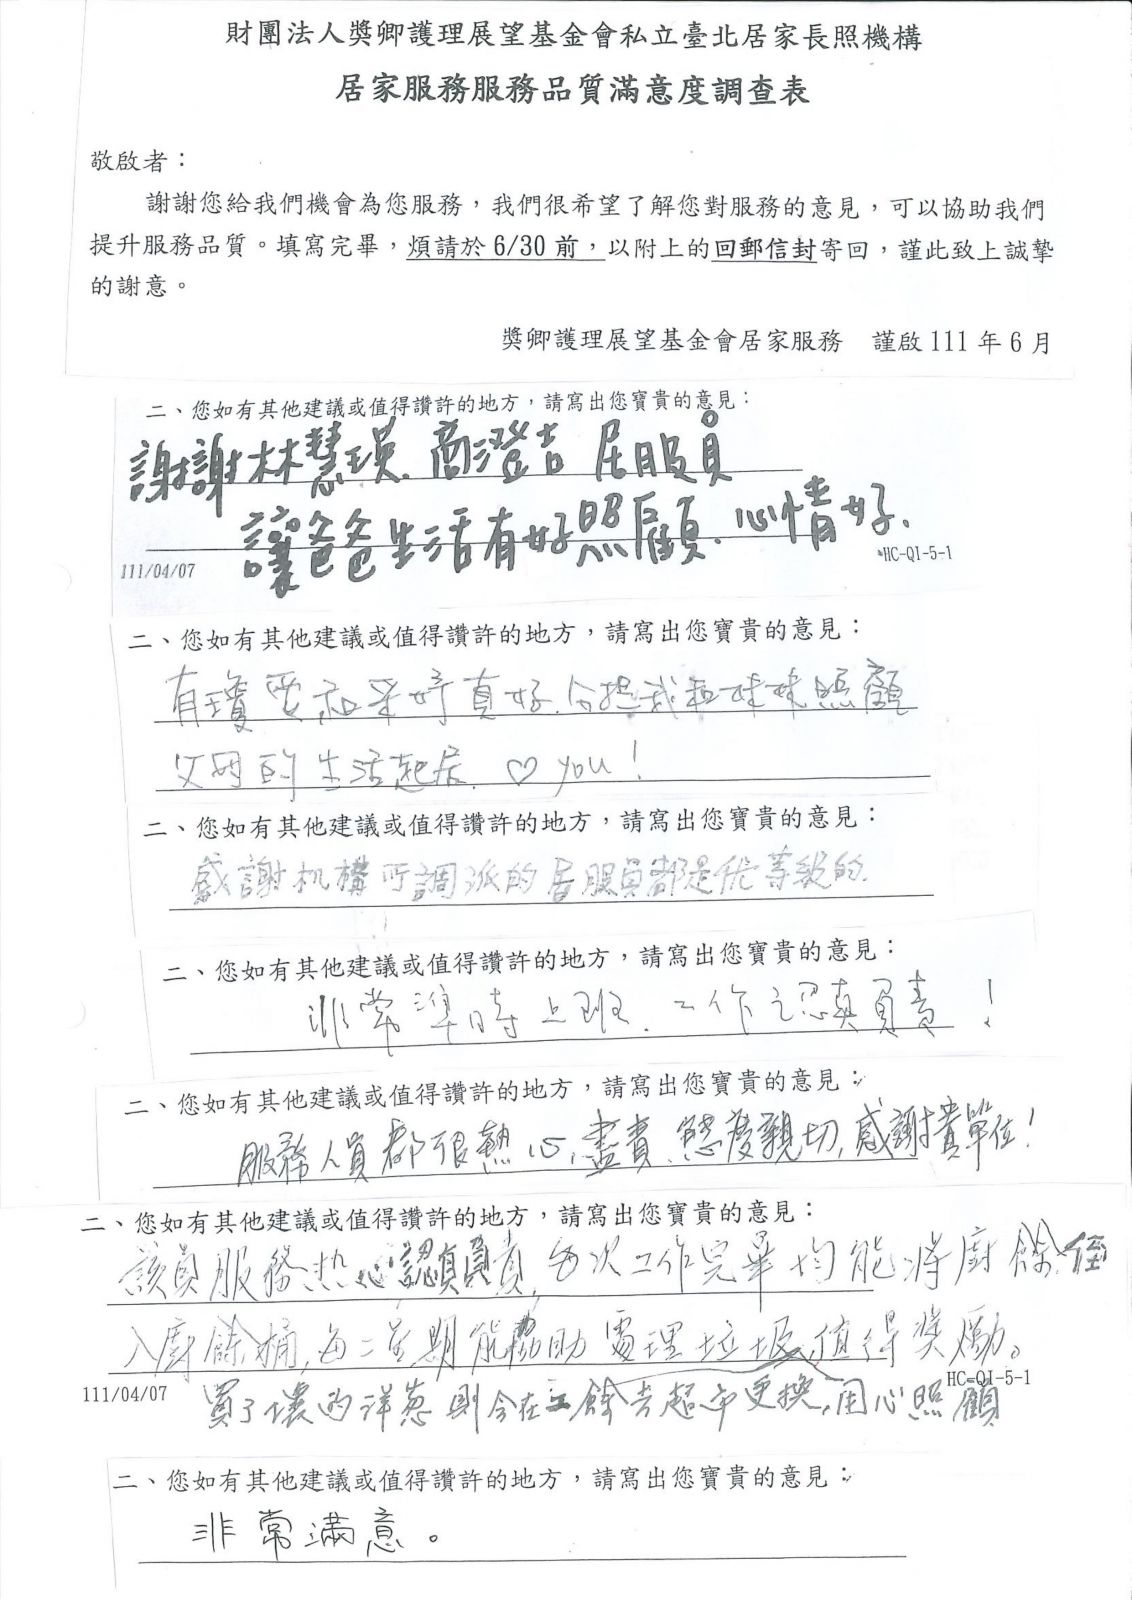 財團法人獎卿護理展望基金會私立臺北居家長照機構
居家服務服務品質滿意度調查表
敬啟者：
謝謝您給我們機會為您服務，我們很希望了解您對服務的意見，可以協助我們
提升服務品質。填寫完畢，煩請於 6/30 前，以附上的回郵信封寄回，謹此致上誠摯
的謝意。
獎卿護理展望基金會居家服務　謹啟 111 年 6 月
二、您如有其他建議或值得讚許的地方，請寫出您寶貴的意見：
謝謝林慧瑛.商澄吉 居服員
讓爸爸生活有好照顧.心情好.
111/04/07
*HC-QI-5-1
二、您如有其他建議或值得讚許的地方，請寫出您寶貴的意見：
有瓊雯和采婷真好.分担我和妹妹照顧
父母的生活起居. ♡ you !
二、您如有其他建議或值得讚許的地方，請寫出您寶貴的意見：
感謝机構所調派的居服員都是优等級的.
二、您如有其他建議或值得讚許的地方，請寫出您寶貴的意見：
非常準時上班.工作之認真負責！
二、您如有其他建議或值得讚許的地方，請寫出您寶貴的意見：
服務人員都很熱心,盡責.態度親切,感謝貴單位!
二、您如有其他建議或值得讚許的地方，請寫出您寶貴的意見：
該員服務热心認真負責,每次工作完畢均能將廚餘倒
入廚餘桶,每二星期能協助處理垃圾,值得獎勵。
111/04/07
HC-QI-5-1
買了壞的洋葱則會在工餘去超市更換,用心照顧
二、您如有其他建議或值得讚許的地方，請寫出您寶貴的意見：
非常滿意。